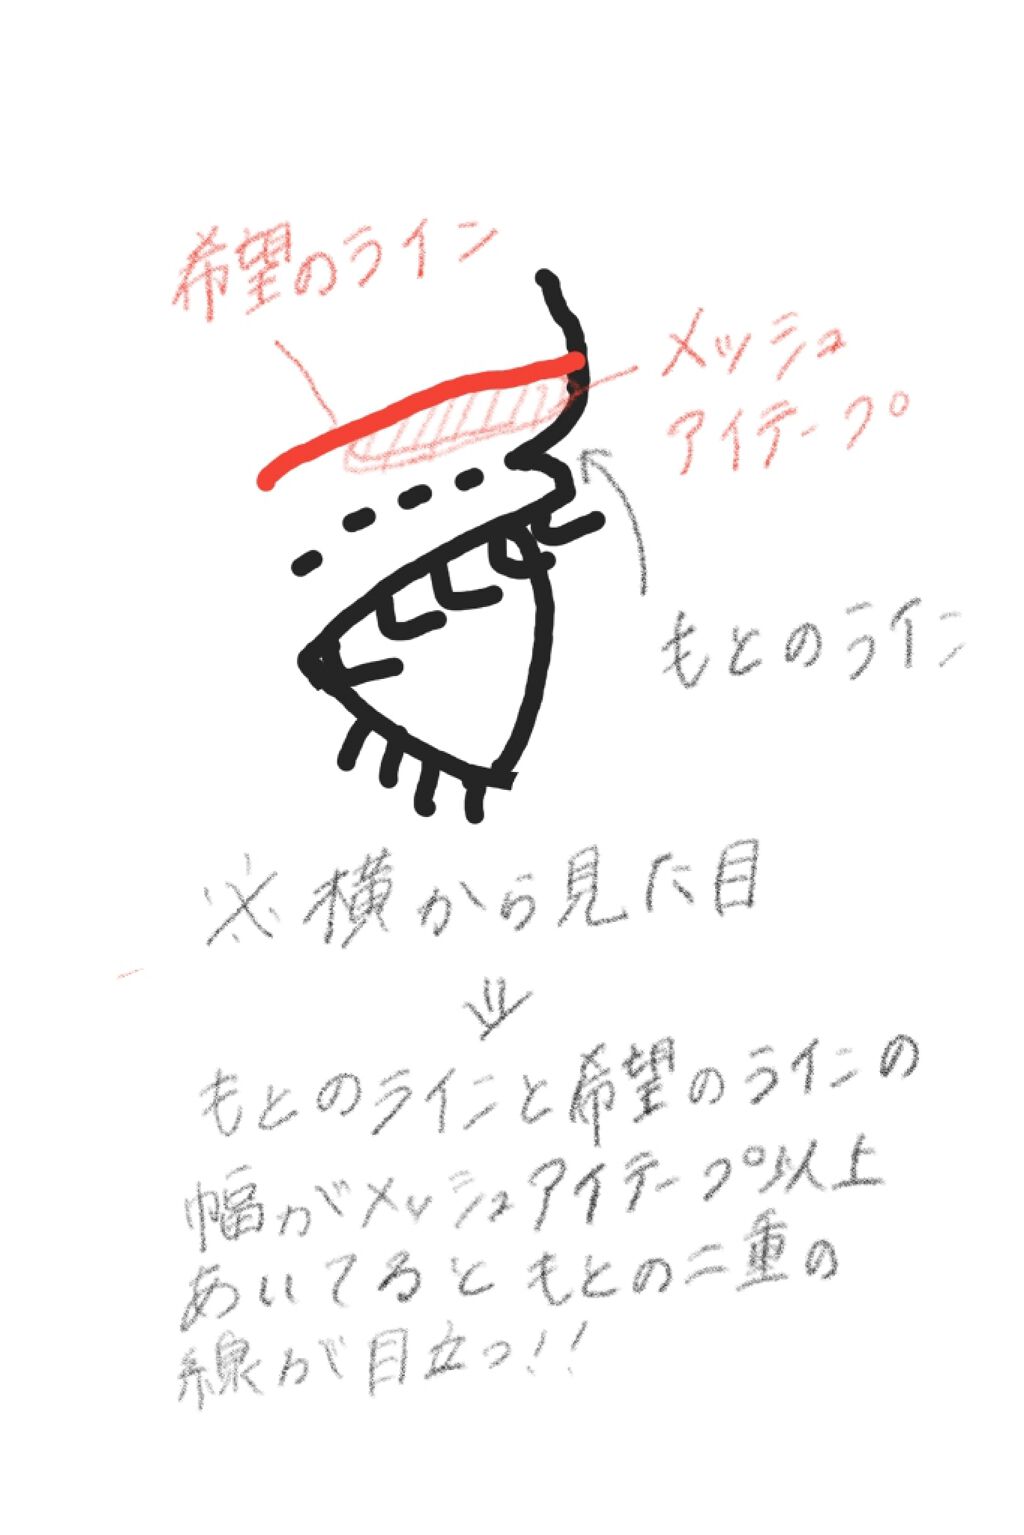 希望のライン
メッシュ
アイテープ
もとのライン
※横から見た目
⇓
もとのラインと希望のラインの
幅がメッシュアイテープ以上
あいてるともとの二重の
線が目立つ!!